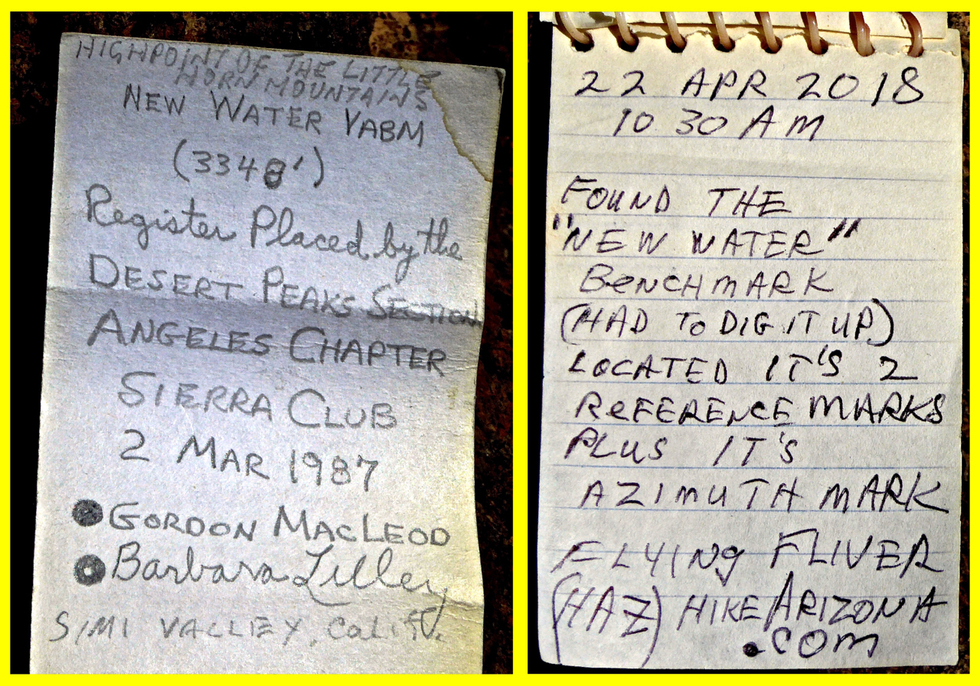 HIGHPOINT OF THE LITTLE
HORN MOUNTAINS
NEW WATER VABM
(3348')
Register Placed by the
DESERT PEAKS SECTION
ANGELES CHAPTER
SIERRA CLUB
2 MAR 1987
GORDON MACLEOD
Barbara Lilley
SIMI VALLEY, Calif.
22 APR 2018
10 30 AM
FOUND THE
"NEW WATER"
BENCHMARK
(HAD TO DIG IT UP)
LOCATED IT'S 2
REFERENCE MARKS
PLUS IT'S
AZIMUTH MARK
FLYING FLIVER
(HAZ) HIKEARIZONA
.COM